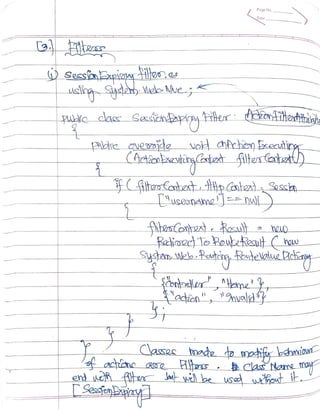 Page No.
Date
[3.] Filters
(i) SessionExpiryFilter.cs
using System.Web.Mvc ;
public class SessionExpiryFilter : ActionFilterAttribute
{
public override void onActionExecuting
(ActionExecutingContext filterContext)
{
if ( filterContext . HttpContext . Session
["username"] == null )
{
filterContext . Result = new
RedirectToRouteResult ( new
System.Web.Routing.RouteValueDictionary
{
{"controller" , "Home" },
{"action" , "Invalid"}
};
}
}
}
Classes made to modify behaviour
of actions are Filters . Class Name may
end with filter but will be used without it .
[SessionExpiry]